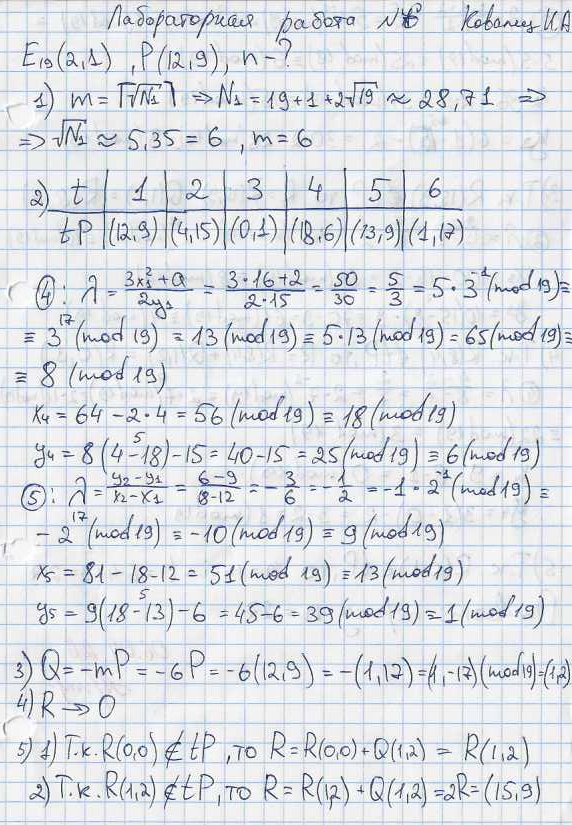 Лабораторная работа №6 Ковалец И.А
E₁₉(2,1) , P(12,9), n-?
1) m = ⌈√N₁⌉ ⇒ N₁ = 19+1+2√19 ≈ 28,71 ⇒
⇒ √N₁ ≈ 5,35 = 6 , m = 6
2) t | 1 | 2 | 3 | 4 | 5 | 6
tP | (12,9) | (4,15) | (0,1) | (18,6) | (13,9) | (1,17)
④: λ = (3x₁²+a)/(2y₁) = (3·16+2)/(2·15) = 50/30 = 5/3 = 5·3⁻¹(mod 19) ≡
≡ 3¹⁷(mod 19) ≡ 13(mod 19) ≡ 5·13(mod 19) = 65(mod 19) ≡
≡ 8 (mod 19)
x₄ = 64 - 2·4 = 56(mod 19) ≡ 18(mod 19)
y₄ = 8(4-18)-15 = 40-15 = 25(mod 19) ≡ 6(mod 19)
5
⑤: λ = (y₂-y₁)/(x₂-x₁) = (6-9)/(18-12) = -3/6 = -1/2 = -1·2⁻¹(mod 19) ≡
-2¹⁷(mod 19) ≡ -10(mod 19) ≡ 9(mod 19)
x₅ = 81-18-12 = 51(mod 19) ≡ 13(mod 19)
y₅ = 9(18-13)-6 = 45-6 = 39(mod 19) ≡ 1(mod 19)
5
3) Q = -mP = -6P = -6(12,9) = -(1,17) = (1,-17)(mod 19) = (1,2)
4) R → O
5) 1) Т.к. R(0,0) ∉ tP, то R = R(0,0)+Q(1,2) = R(1,2)
2) Т.к. R(1,2) ∉ tP, то R = R(1,2) + Q(1,2) = 2R = (15,9)